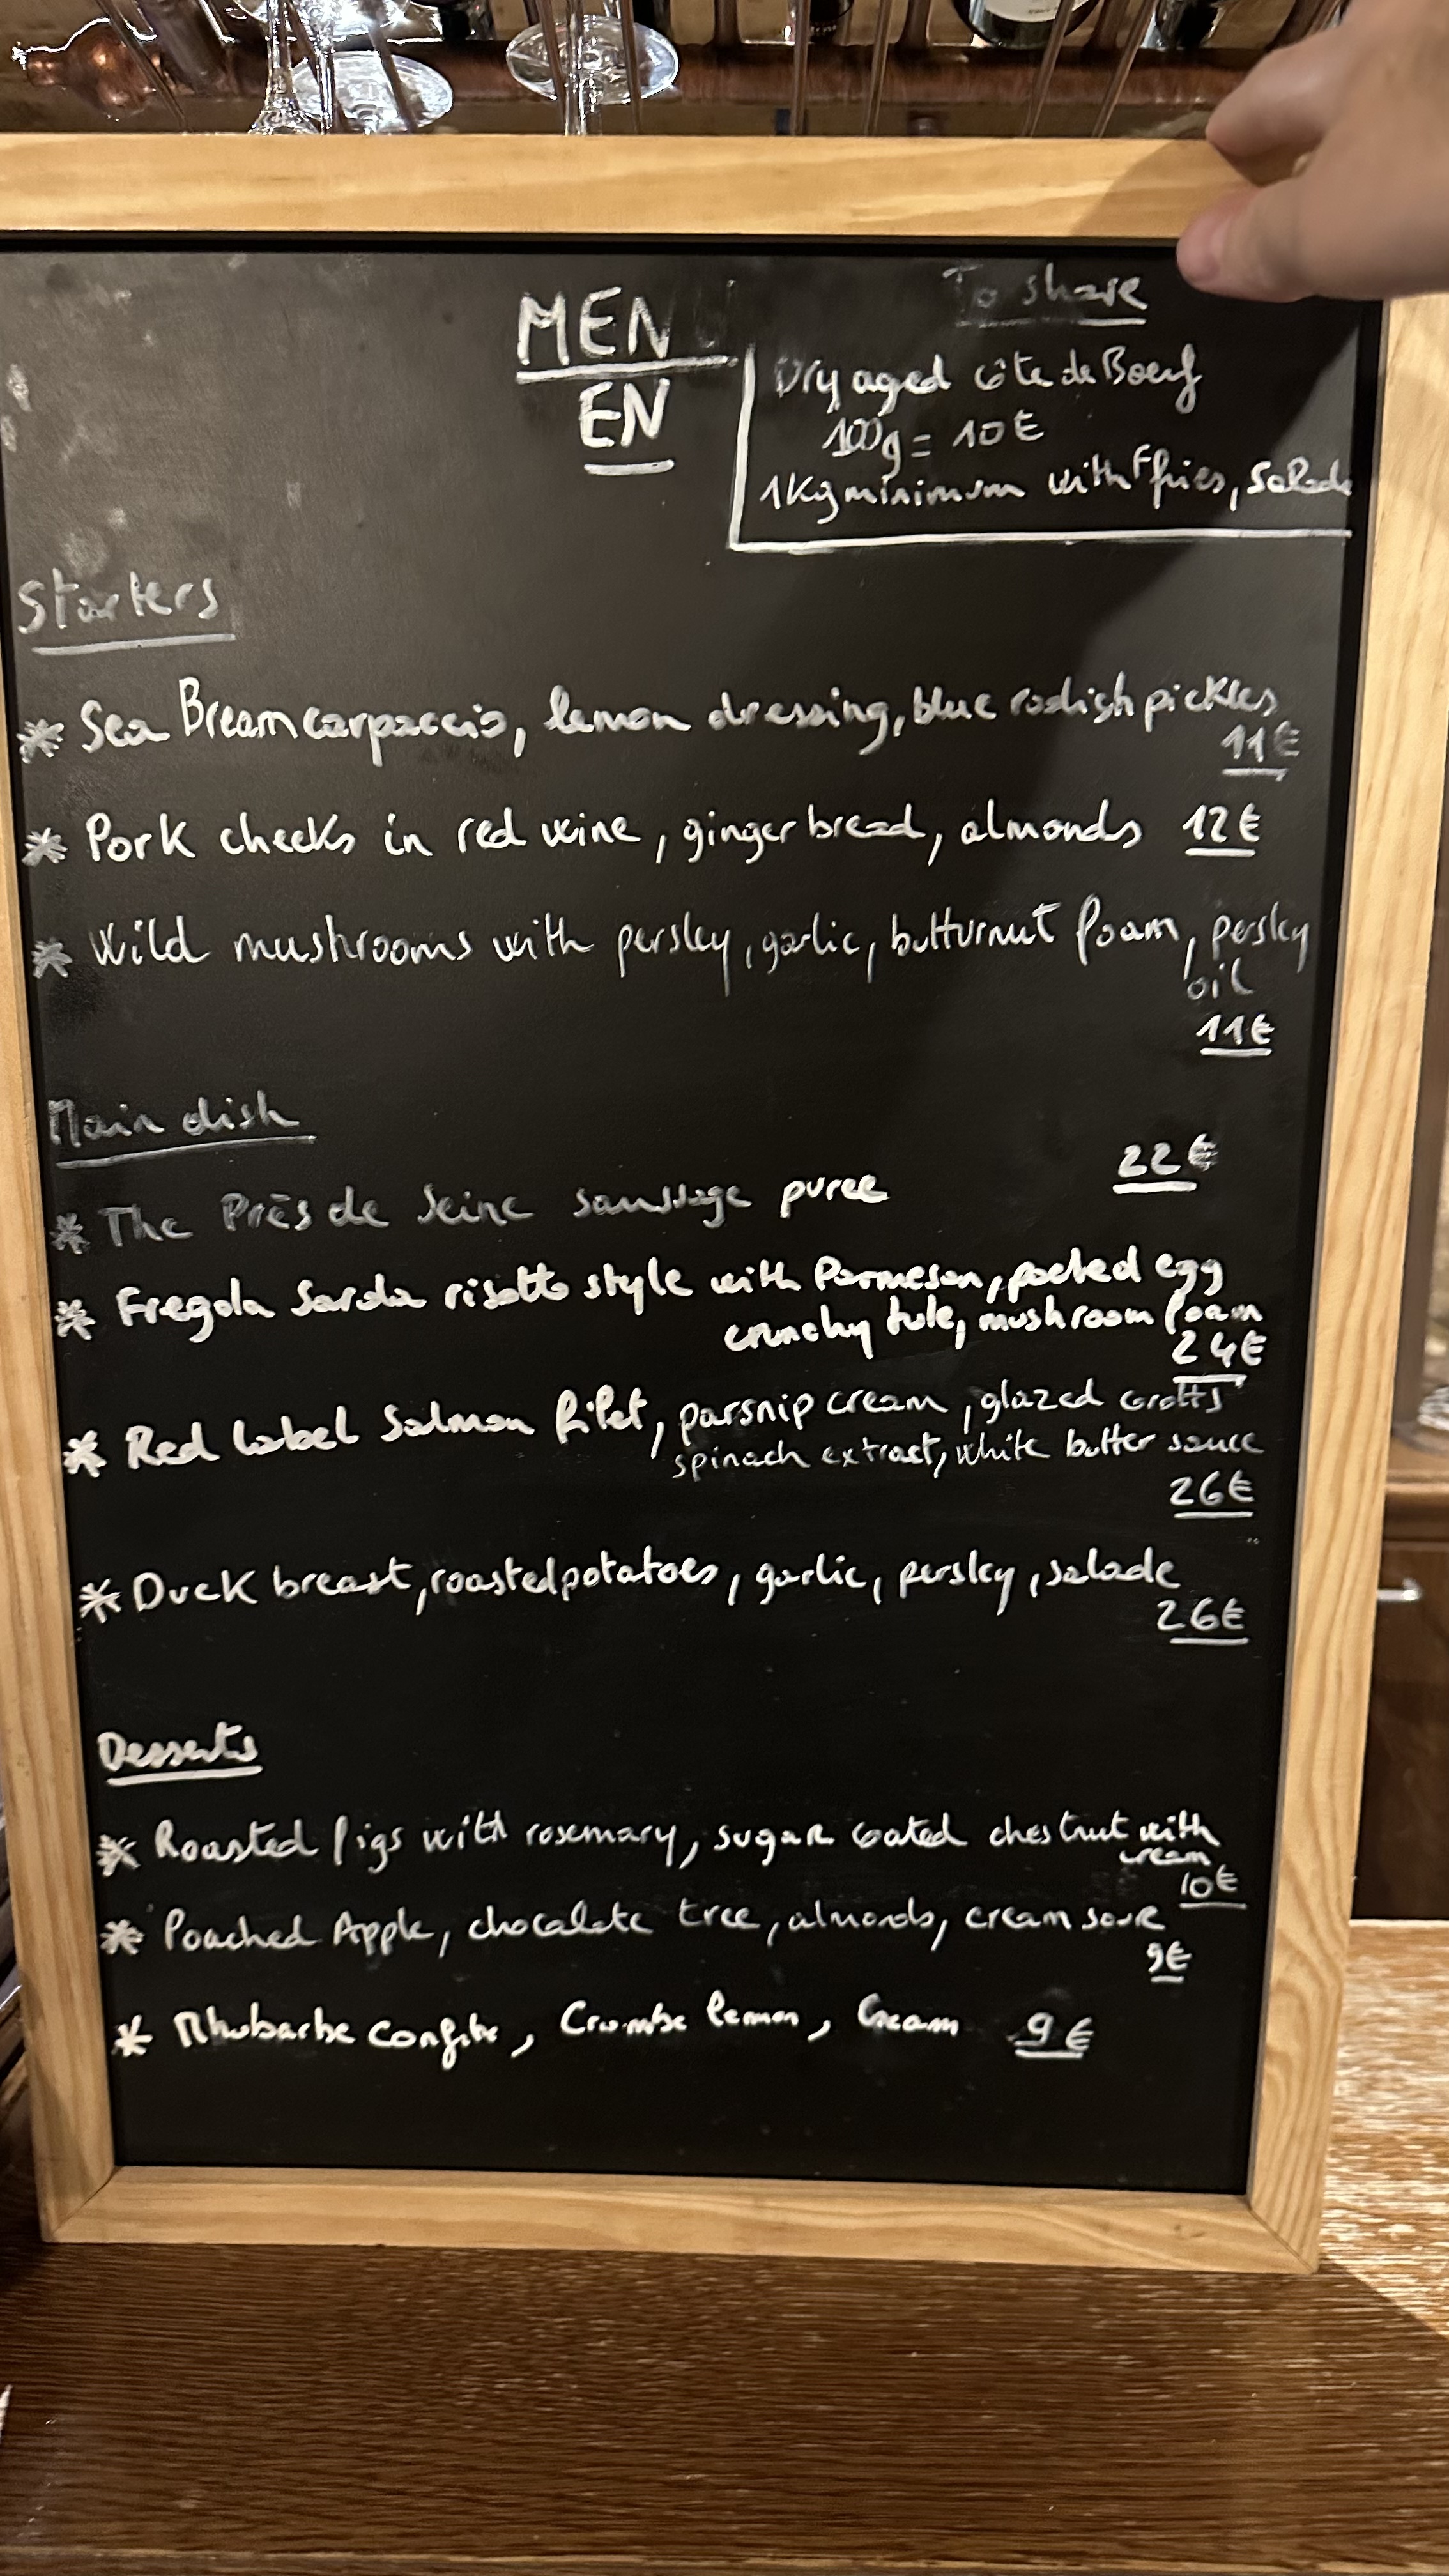 MENU
EN
To share
Dry aged côte de Boeuf
100g = 10€
1Kg minimum with fries, Salade
Starters
* Sea Bream carpaccio, lemon dressing, blue radish pickles
11€
* Pork cheeks in red wine, ginger bread, almonds 12€
* Wild mushrooms with persley, garlic, butturnut foam, persley
oil
11€
Main dish
22€
* The Près de Seine saussage puree
* Fregola Sarda risotto style with Parmesan, poched egg
crunchy tuile, mushroom foam
24€
* Red Label Salmon filet, parsnip cream, glazed
spinach extract, white butter sauce
26€
* Duck breast, roasted potatoes, garlic, persley, salade
26€
Desserts
* Roasted figs with rosemary, sugar coated chestnut with
cream
10€
* Poached Apple, chocolate tree, almonds, cream sour
9€
* Rhubarbe confite, Crumble lemon, Cream 9€